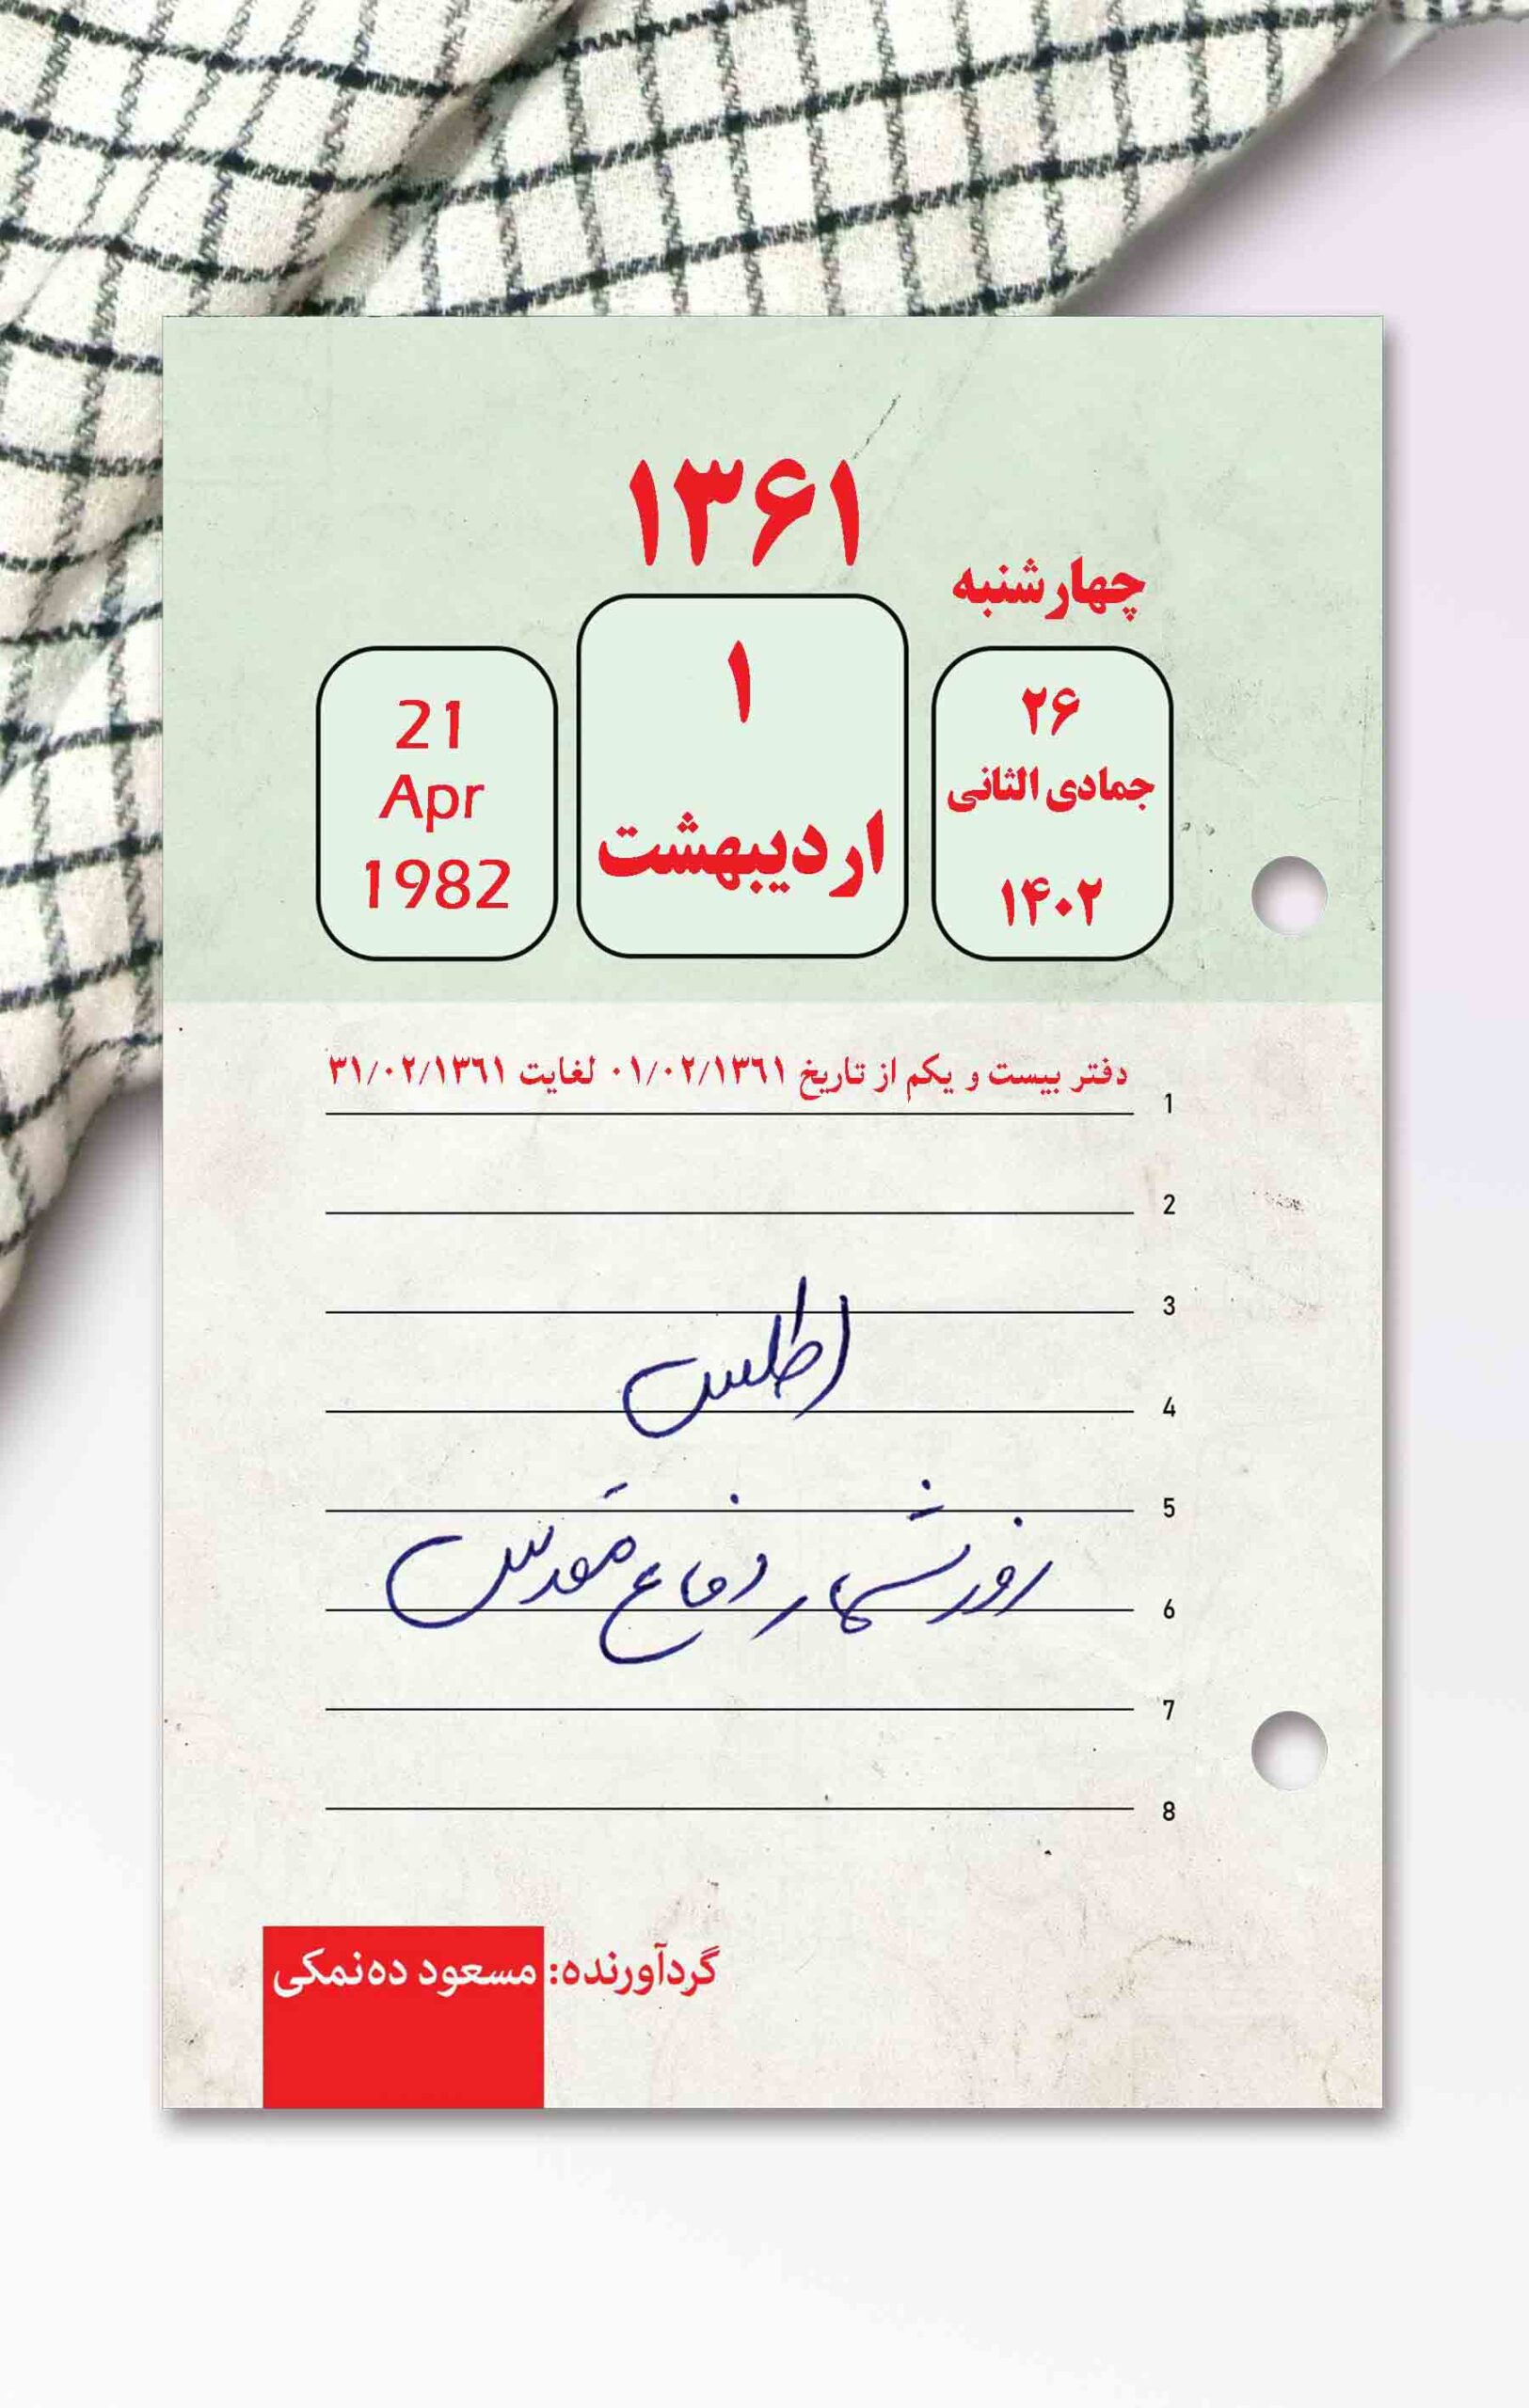 ۱۳۶۱
چهارشنبه
۲۶
جمادی الثانی
۱۴۰۲
۱
اردیبهشت
21
Apr
1982
دفتر بیست و یکم از تاریخ ۰۱/۰۲/۱۳٦۱ لغایت ۳۱/۰۲/۱۳٦۱
1
2
3
اطلس
4
5
روزشمار دفاع مقدس
6
7
8
گردآورنده: مسعود ده‌نمکی